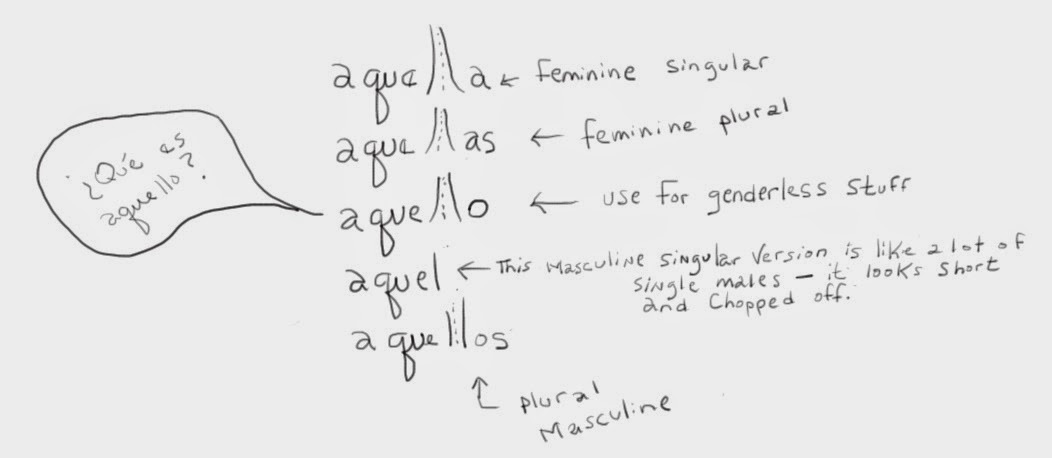 aquella ← Feminine singular
aquellas ← feminine plural
¿Qué es
aquello?
aquello ← use for genderless stuff
aquel ← This Masculine singular version is like a lot of
single males – it looks short
and chopped off.
aquellos
plural
Masculine